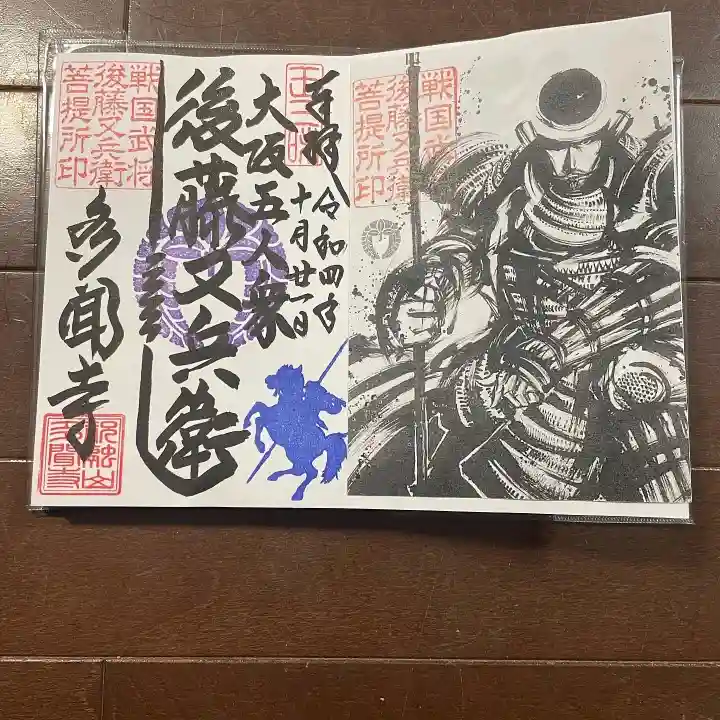 戦国武将
後藤又兵衛
菩提所印
奉拝 令和四年
十月廿一日
大阪五人衆
後藤又兵衛
戦国武将
後藤又兵衛
菩提所印
多聞寺
祝融山
多聞寺